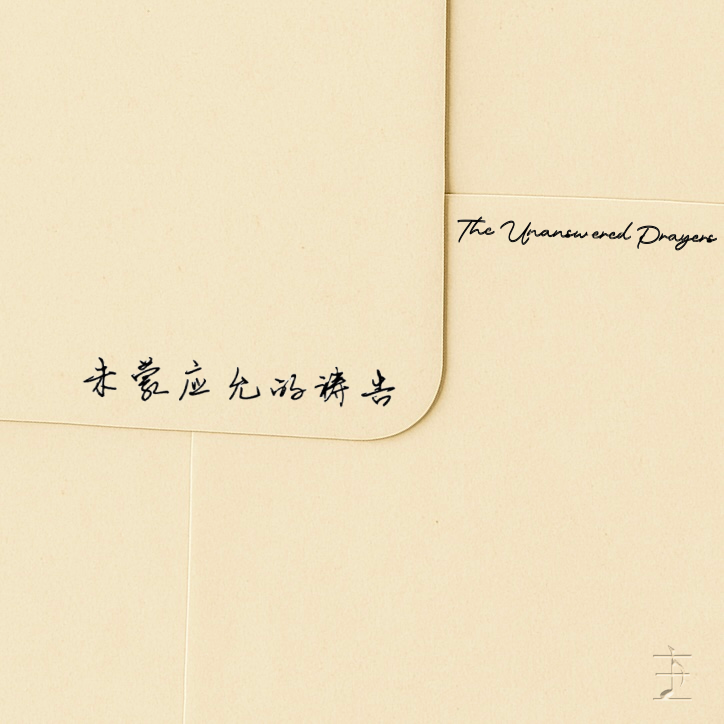 The Unanswered Prayers
未蒙应允的祷告